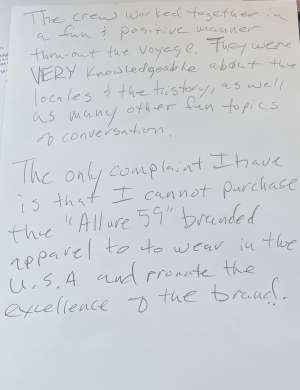 The crew worked together in
a fun & positive manner
throu-out the voyage. They were
VERY knowledgeable about the
locales & the history, as well
as many other fun topics
of conversation.
The only complaint I have
is that I cannot purchase
the "Allure 59" branded
apparel to to wear in the
U.S.A and promote the
excellence of the brand!